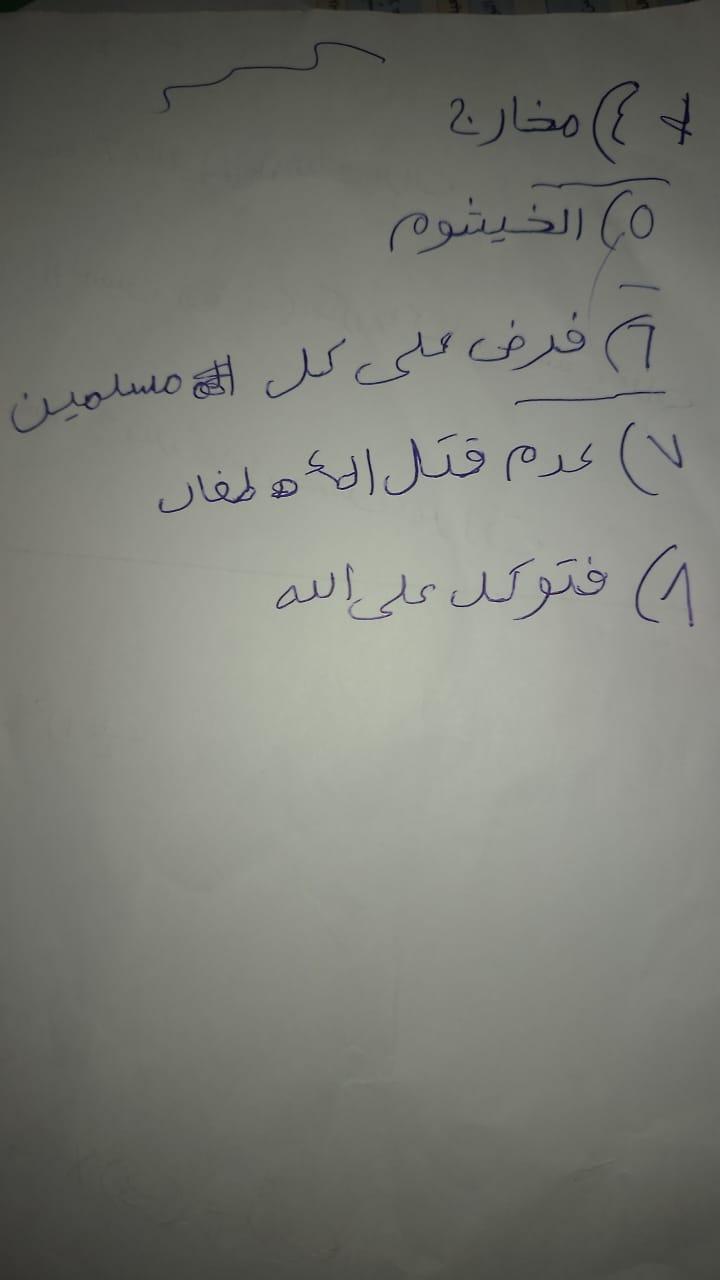 ٤) مخارج
٥) الخيشوم
٦) فرض على كل مسلمين
٧) عدم قتل الأطفال
٨) فتوكل على الله